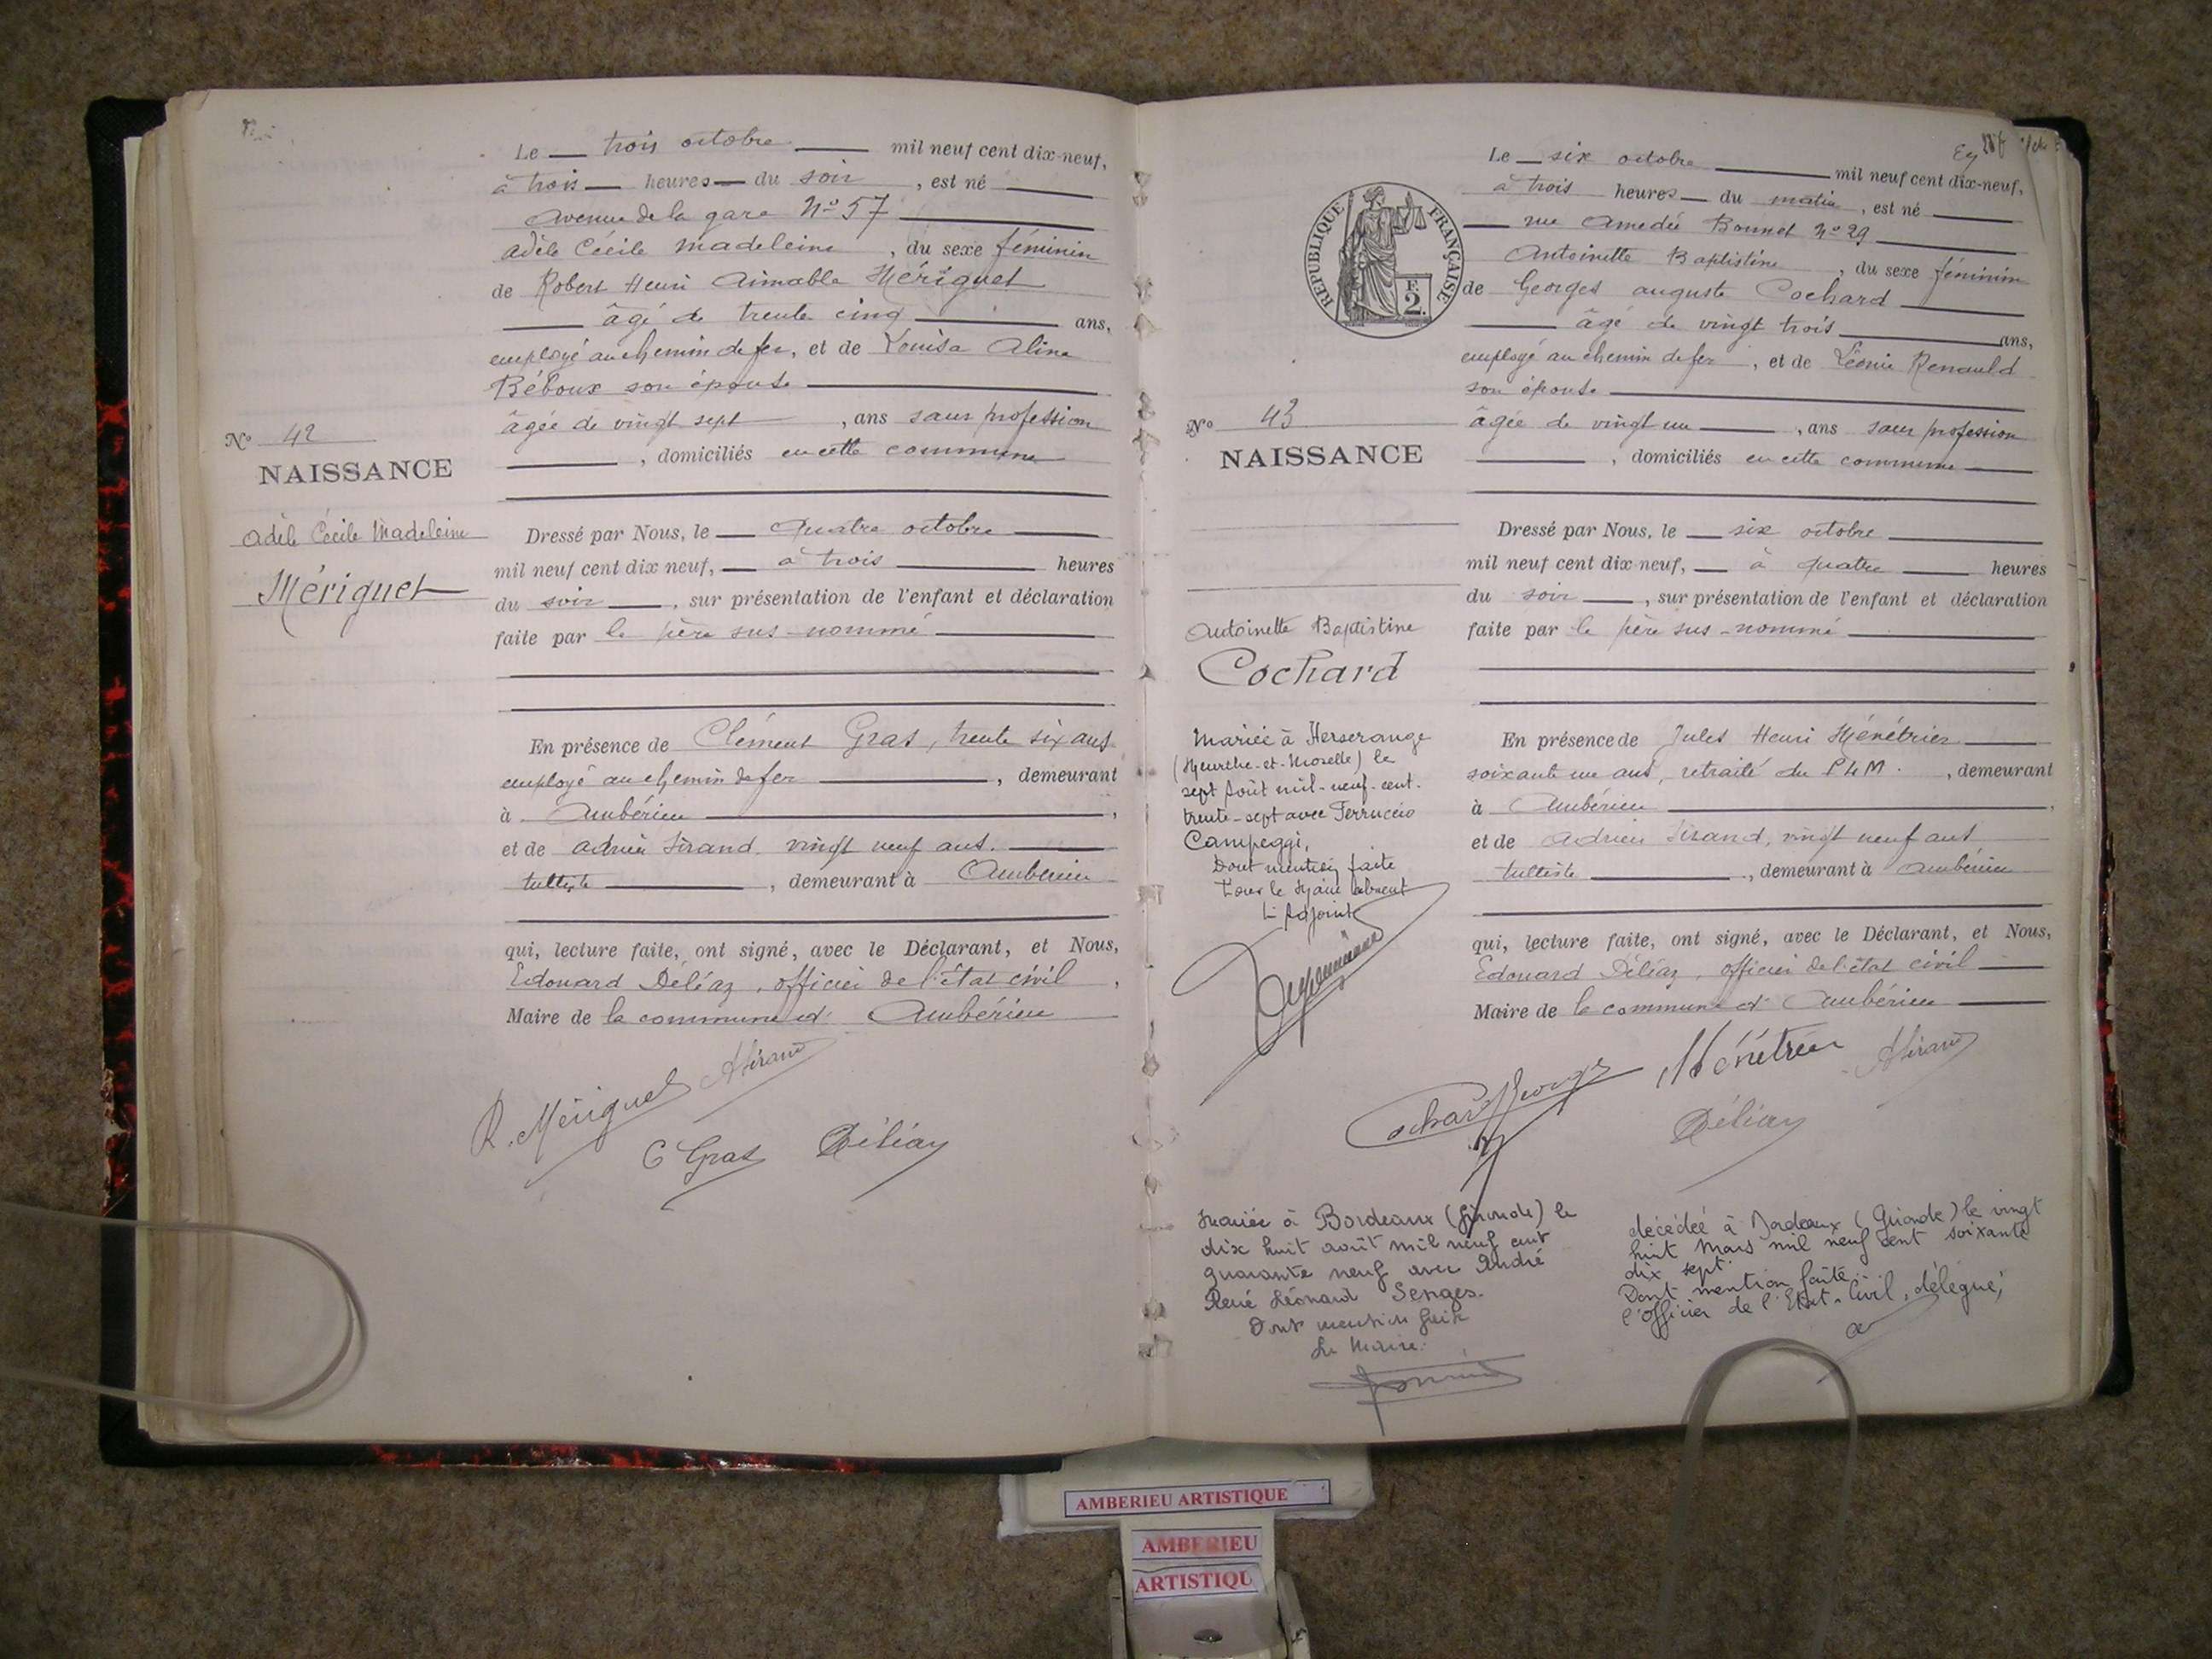 Le trois octobre mil neuf cent dix-neuf,
à trois heures du soir, est né
Avenue de la gare N° 57
Adèle Cécile Madeleine, du sexe féminin
de Robert Henri Aimable Mériguet
âgé de trente cinq ans,
employé au chemin de fer, et de Louisa Aline
Béboux son épouse
âgée de vingt sept, ans sans profession
, domiciliés en cette commune
N° 42
NAISSANCE
Adèle Cécile Madeleine
Mériguet
Dressé par Nous, le quatre octobre
mil neuf cent dix neuf, à trois heures
du soir, sur présentation de l'enfant et déclaration
faite par le père sus-nommé
En présence de Clément Gras, trente six ans
employé au chemin de fer, demeurant
à Ambérieu,
et de Adrien Sirand, vingt neuf ans.
tulliste, demeurant à Ambérieu
qui, lecture faite, ont signé, avec le Déclarant, et Nous,
Edouard Déliaz, officier de l'état civil,
Maire de la commune d' Ambérieu
R. Mériguet ASirand
C Gras Déliaz
Le six octobre mil neuf cent dix-neuf,
à trois heures du matin, est né
rue Amédée Bonnet N° 29
Antoinette Baptistine, du sexe féminin
de Georges Auguste Cochard
âgé de vingt trois ans,
employé au chemin de fer, et de Léonie Renauld
son épouse
âgée de vingt un, ans sans profession
, domiciliés en cette commune
RÉPUBLIQUE FRANÇAISE
F.
2.
N° 43
NAISSANCE
Antoinette Baptistine
Cochard
Dressé par Nous, le six octobre
mil neuf cent dix-neuf, à quatre heures
du soir, sur présentation de l'enfant et déclaration
faite par le père sus-nommé
En présence de Jules Henri Ménétrier
soixante un ans, retraité du PLM., demeurant
à Ambérieu,
et de Adrien Sirand, vingt neuf ans
tulliste, demeurant à Ambérieu
qui, lecture faite, ont signé, avec le Déclarant, et Nous,
Edouard Déliaz, officier de l'état civil
Maire de la commune d' Ambérieu
Mariée à Herserange
(Meurthe-et-Moselle) le
sept Août mil-neuf-cent-
trente-sept avec Ferruccio
Campeggi,
Dont mention faite
Pour le Maire absent
L'Adjoint
Cochard Georges Ménétrier ASirand
Déliaz
Mariée à Bordeaux (Gironde) le
dix huit août mil neuf cent
quarante neuf avec André
René Léonard Senges.
Dont mention faite
Le Maire.
décédée à Bordeaux (Gironde) le vingt
huit Mars mil neuf cent soixante
dix sept.
Dont mention faite.
l'Officier de l'Etat-Civil, délégué,
AMBERIEU ARTISTIQUE
AMBERIEU
ARTISTIQU